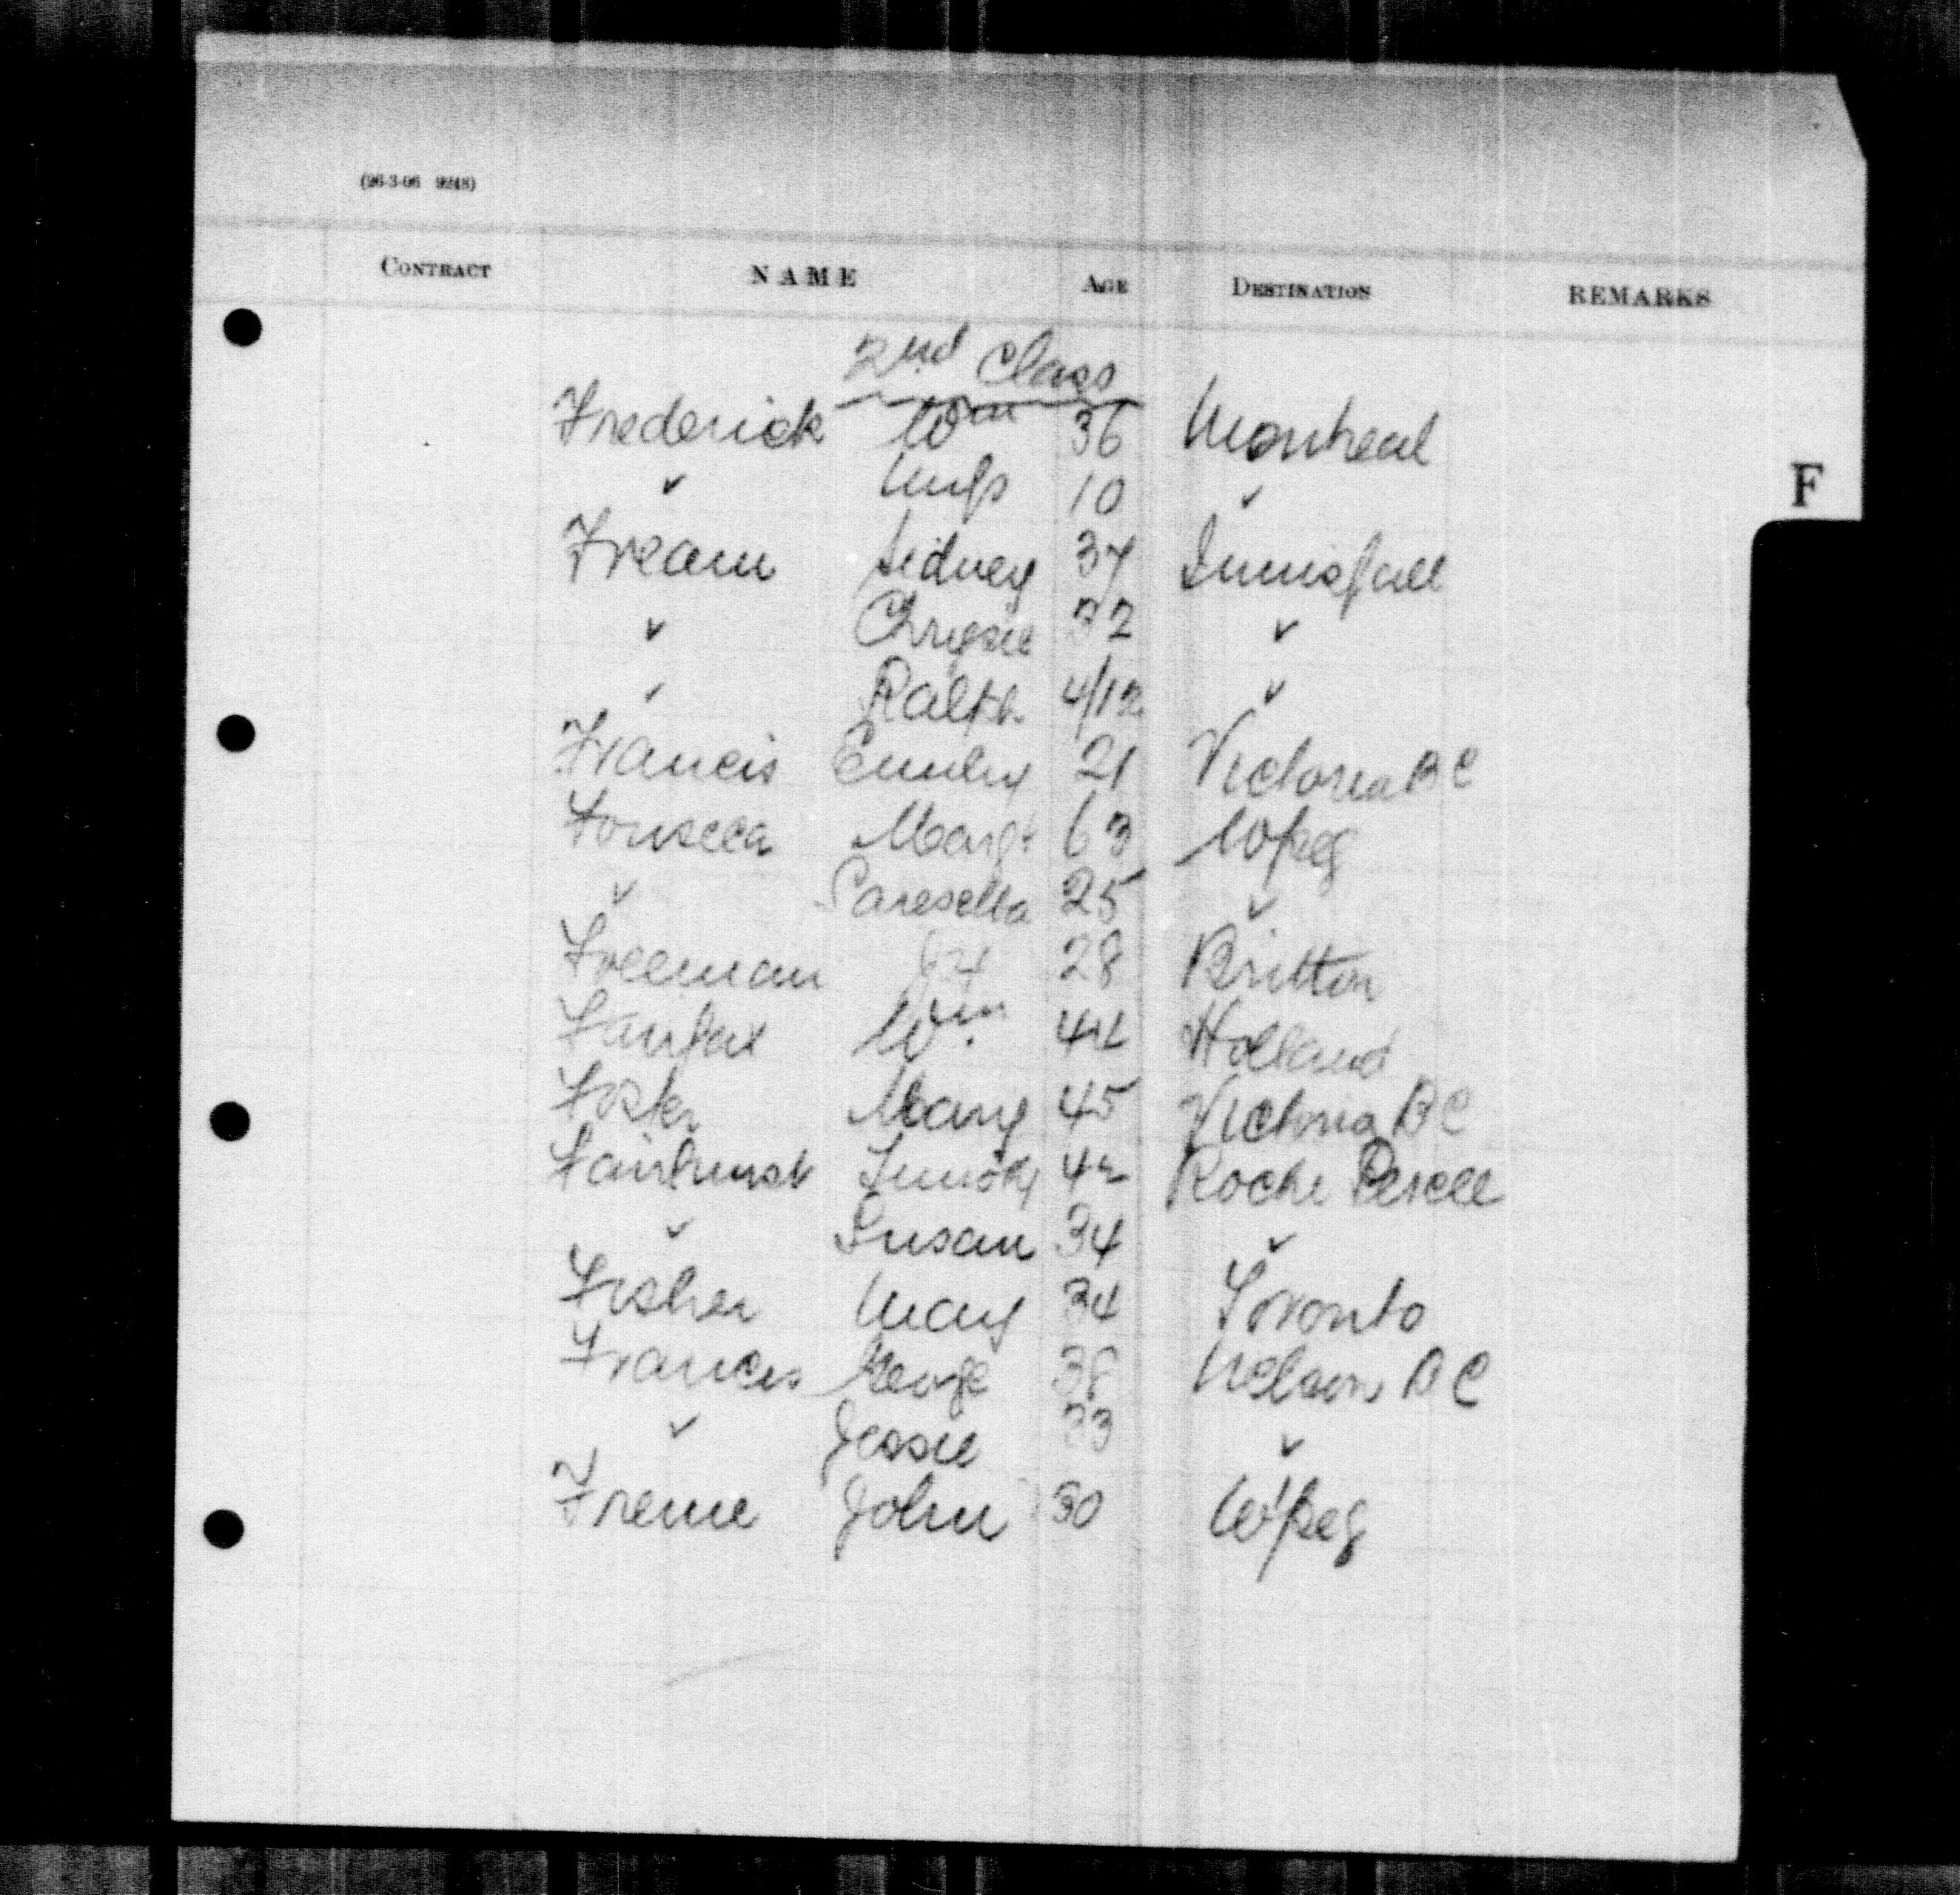 (26-3-06 9248)
CONTRACT NAME AGE DESTINATION REMARKS
2nd Class
Frederick Wm 36 Montreal
✓ 10 ✓
F
Fream Sidney 37 Innisfail
✓ Chryssie 32 ✓
✓ Ralph 4/12 ✓
Francis Emily 21 Victoria BC
Fonseca Margt 63 Wpeg
✓ 25 ✓
Freeman 28 Britton
Fairfax Wm. 44 Holland
Foster Mary 45 Victoria BC
Fairhurst Timothy 42 Roche Percee
✓ Susan 34 ✓
Fisher Mary 34 Toronto
Francis George 38 Nelson BC
✓ Jessie 33 ✓
Freme John 30 W'peg